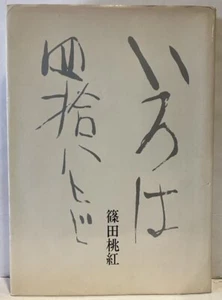 いろは
四拾八もじ
篠田桃紅